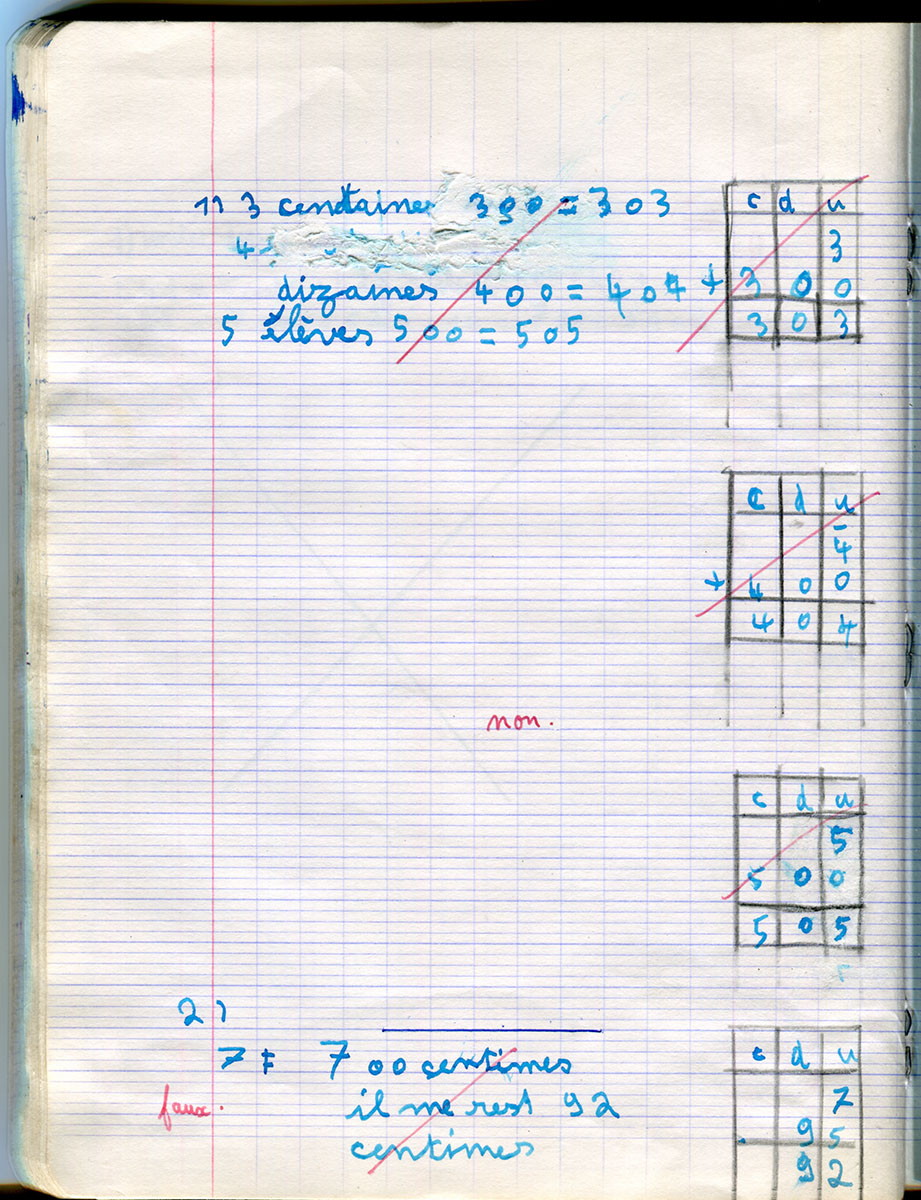 1) 3 centaines 300 = 303
4
dizaines 400 = 404
5 élèves 500 = 505
c d u
3
+ 3 0 0
3 0 3
c d u
4
+ 4 0 0
4 0 4
non.
c d u
5
5 0 0
5 0 5
2)
7F 700 centimes
faux. il me rest 92
centimes
c d u
7
9 5
9 2